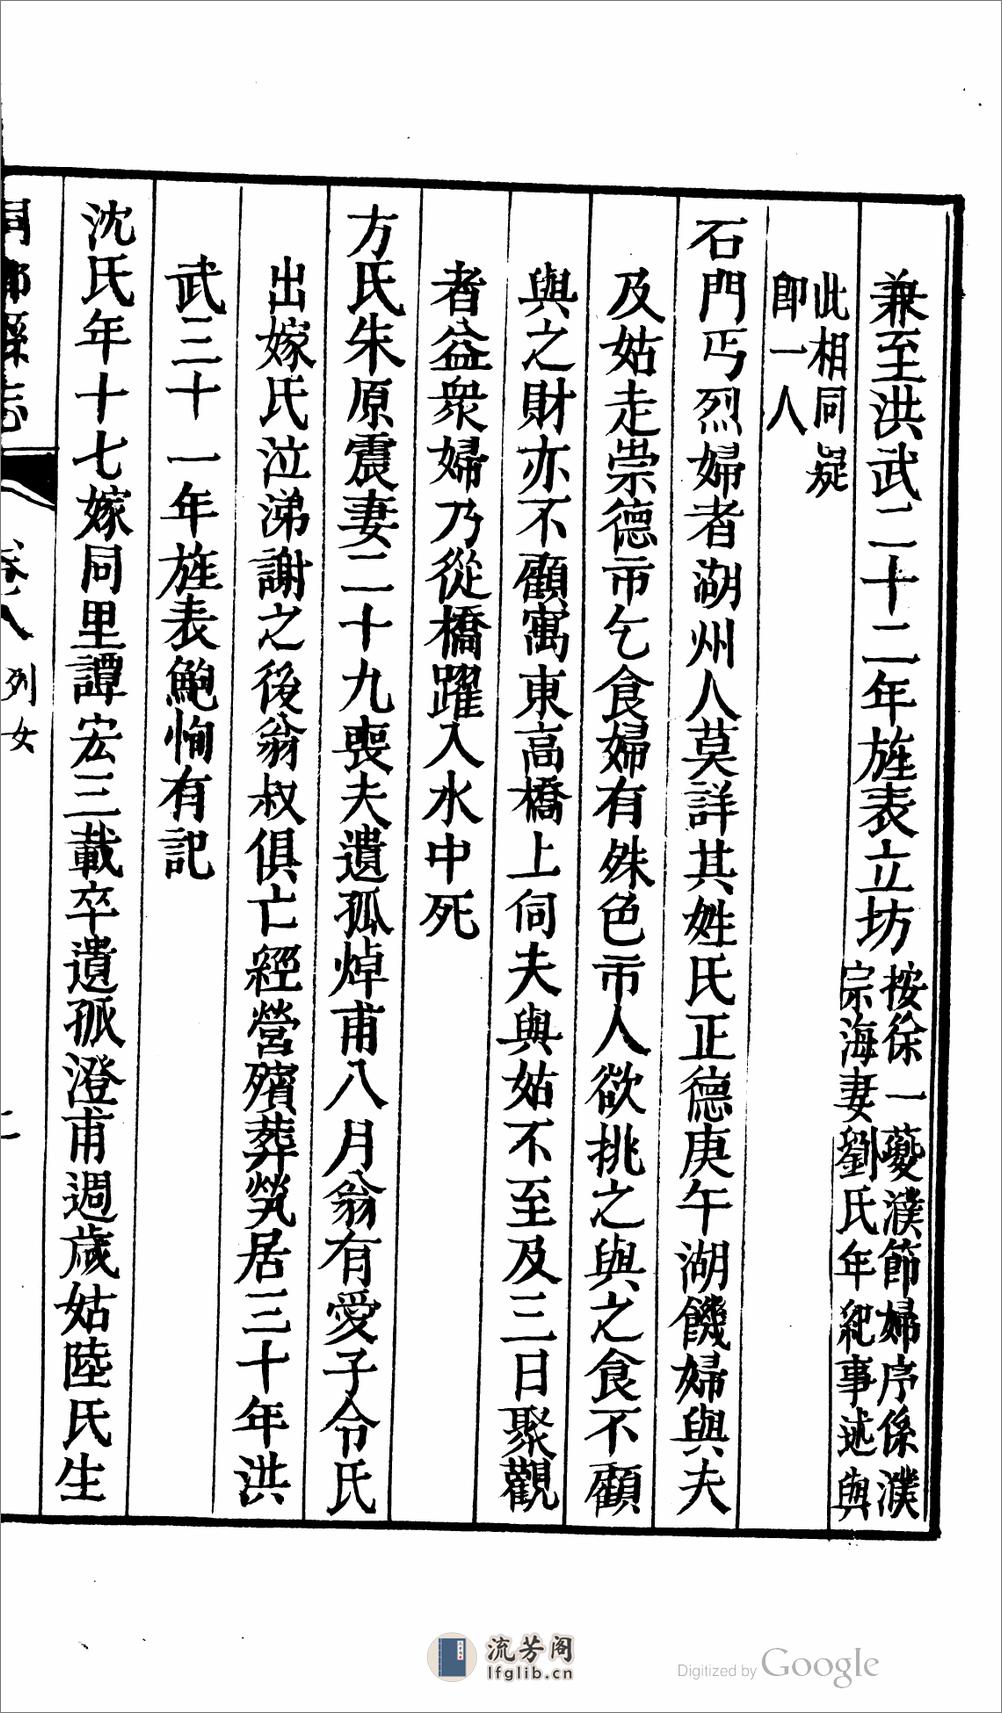 兼至洪武二十二年旌表立坊按徐一夔濮節婦序係濮
宗海妻劉氏年紀事述與
此相同疑
卽一人
石門丐烈婦者湖州人莫詳其姓氏正德庚午湖饑婦與夫
及姑走崇德市乞食婦有殊色市人欲挑之與之食不顧
與之財亦不顧寓東高橋上伺夫與姑不至及三日聚觀
者益衆婦乃從橋躍入水中死
方氏朱原震妻二十九喪夫遺孤焯甫八月翁有愛子令氏
出嫁氏泣涕謝之後翁叔俱亡經營殯葬煢居三十年洪
武三十一年旌表鮑恂有記
沈氏年十七嫁同里譚宏三載卒遺孤澄甫週歲姑陸氏生
桐鄉縣志 卷八 列女
流芳阁
lfglib.cn
Digitized by Google